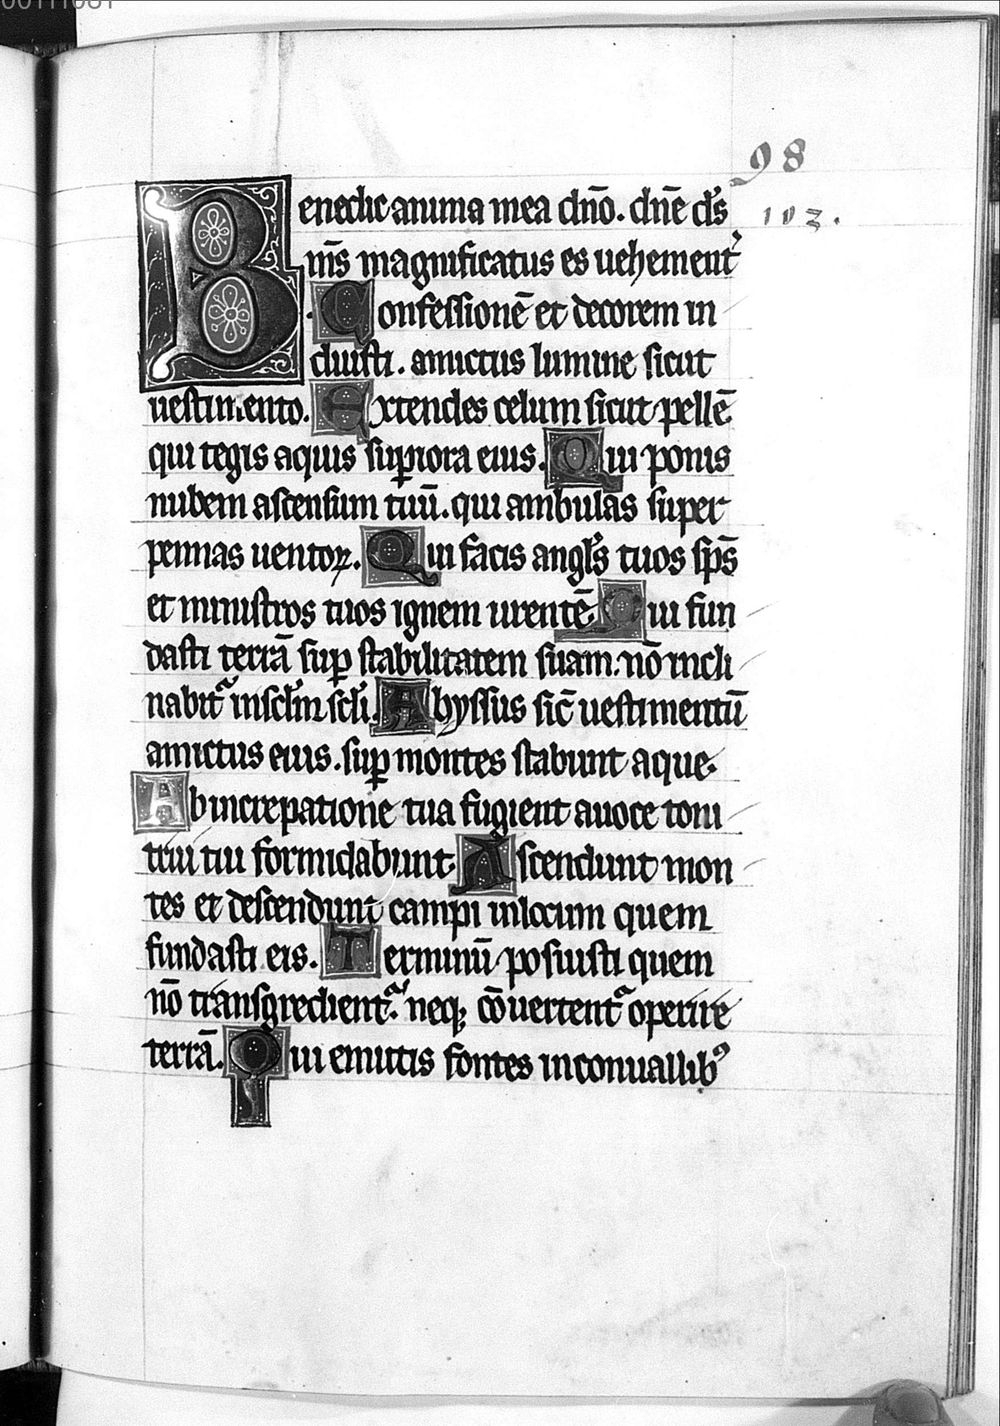 00111081
98
Benedic anima mea dn̄o. dn̄e ds̄
103.
ms̄ magnificatus es uehement᷑
Confessionē et decorem in
duisti. amictus lumine sicut
uestimento. Extendes celum sicut pellē
qui tegis aquis suꝑiora eius. Qui ponis
nubem ascensum tuū. qui ambulas super
pennas uentoꝝ. Qui facis angl̄s tuos sp̄s
et ministros tuos ignem urentē. Qui fun
dasti terrā suꝑ stabilitatem suam. nō incli
nabit᷑ in scl̄m scl̄i. Abyssus sic̄ uestimentū
amictus eius. suꝑ montes stabunt aque.
Ab increpatione tua fugient a uoce toni
trui tui formidabunt. Ascendunt mon
tes et descendunt campi in locum quem
fundasti eis. Terminū posuisti quem
nō transgredient᷑. neqꝫ cōuertent᷑ operire
terrā. Qui emittis fontes in conuallibꝰ